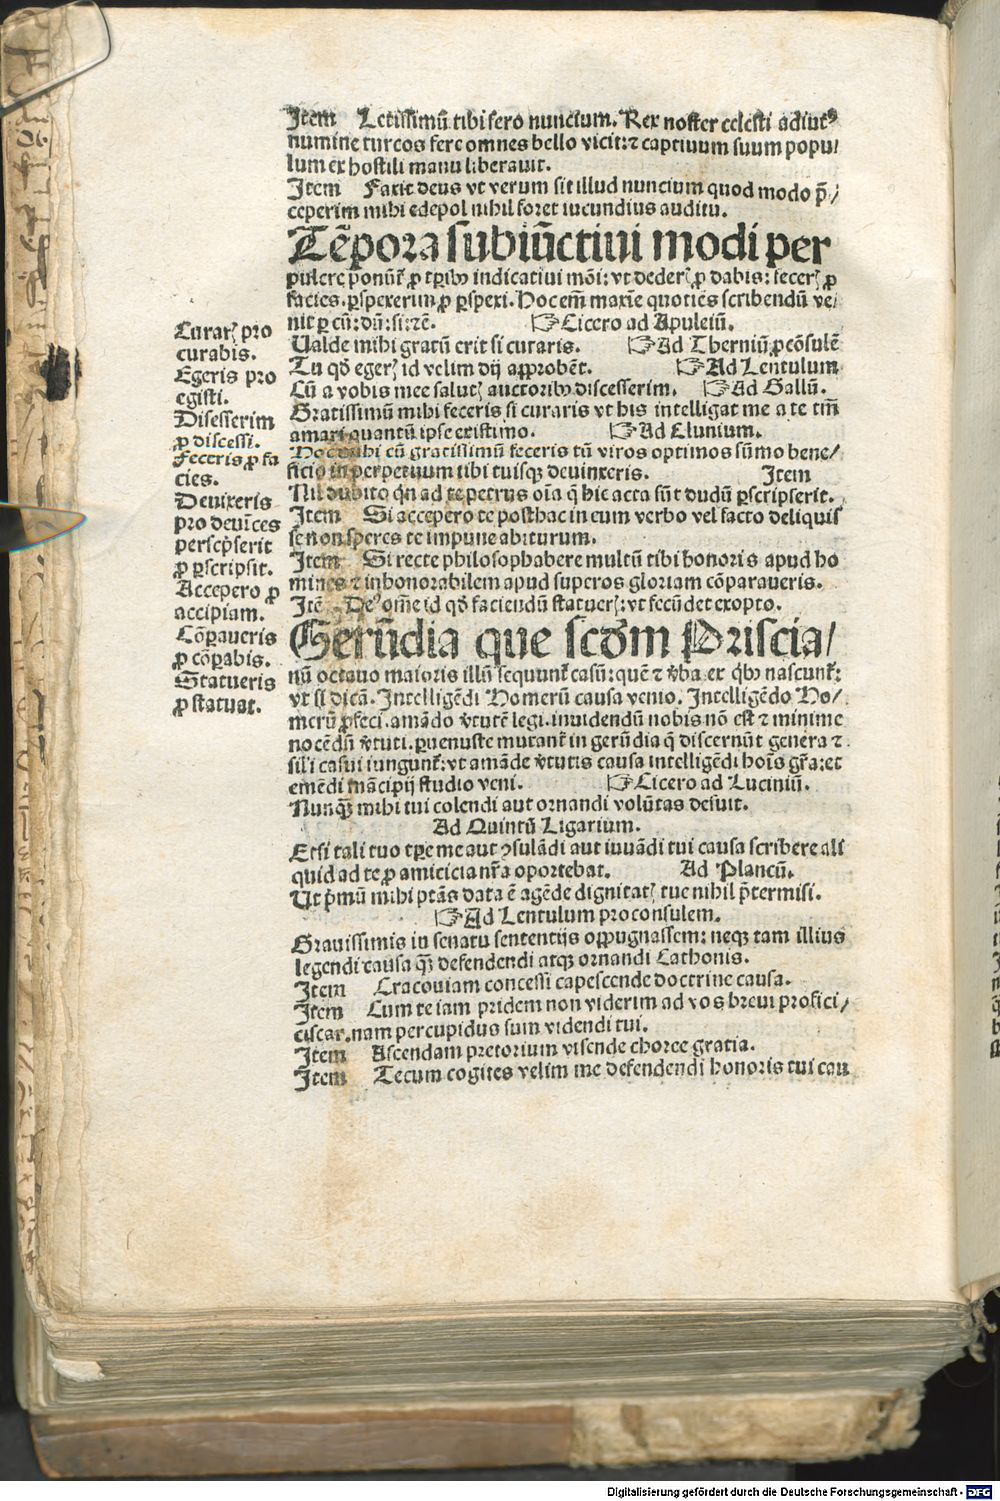 Item Letissimū tibi fero nuncium. Rex noster celesti adiutꝰ
numine turcos fere omnes bello vicit: ⁊ captiuum suum popu/
lum ex hostili manu liberauit.
Item Faxit deus vt verum sit illud nuncium quod modo p̄/
ceperim mihi edepol nihil foret iucundius auditu.
Tēpora subiūctiui modi per
pulcre ponūt᷑ ꝓ tꝑibꝰ indicatiui mōi: vt dederꝭ ꝓ dabis: fecerꝭ ꝓ
facies. ꝑspexerim ꝓ ꝑspexi. Hoc em̄ maxīe quotiēs scribendū ve/
nit ꝑ cū: dū: si: ⁊c̄. ☞Cicero ad Apuleiū.
Valde mihi gratū erit si curaris. ☞Ad Therniū ꝓcōsulē
Tu qd̄ egerꝭ id velim dij approbēt. ☞Ad Lentulum
Cū a vobis mee salutꝭ auctoribꝰ discesserim. ☞Ad Gallū.
Gratissimū mihi feceris si curaris vt his intelligat me a te tm̄
amari quantū ipse existimo. ☞Ad Elunium.
Hoc mihi cū gratissimū feceris tū viros optimos sūmo bene/
ficio in perpetuum tibi tuisqꝫ deuinxeris. Item
Nil dubito qn̄ ad te petrus oīa q̄ hic acta sūt dudū ꝑscripserit.
Item Si accepero te posthac in eum verbo vel facto deliquis
se non speres te impune abiturum.
Item Si recte philosophabere multū tibi honoris apud ho
mines ⁊ inhonorabilem apud superos gloriam cōparaueris.
Itē Deꝰ om̄e id qd̄ faciendū statuerꝭ: vt fecūdet exopto.
Gerūdia que scd̄m Priscia/
nū octauo maioris illū sequunt᷑ casū: quē ⁊ v̄ba ex qbꝰ nascunt᷑:
vt si dicā. Intelligēdi Homerū causa venio. Intelligēdo Ho/
merū ꝓfeci. amādo v̄tutē legi. inuidendū nobis nō est ⁊ minime
nocēdū v̄tuti. ꝑuenuste mutant᷑ in gerūdia q̄ discernūt genera ⁊
sil'i casui iungunt᷑: vt amāde v̄tutis causa intelligēdi hoīs gr̄a: et
emēdi mācipij studio veni. ☞Cicero ad Luciniū.
Nunqꝫ̄ mihi tui colendi aut ornandi volūtas defuit.
Ad Quintū Ligarium.
Etsi tali tuo tꝑe me aut ꝯsulādi aut iuuādi tui causa scribere ali
quid ad te ꝓ amicicia nr̄a oportebat. Ad Plancū.
Vt p̄mū mihi ptās data ē agēde dignitatꝭ tue nihil p̄termisi.
☞Ad Lentulum proconsulem.
Grauissimis in senatu sententijs oppugnassem: neqꝫ tam illius
legendi causa qꝫ̄ defendendi atqꝫ ornandi Cathonis.
Item Cracouiam concessi capescende doctrine causa.
Item Cum te iam pridem non viderim ad vos breui profici/
ciscar. nam percupidus sum videndi tui.
Item Ascendam pretorium visende choree gratia.
Item Tecum cogites velim me defendendi honoris tui cau
Curarꝭ pro
curabis.
Egeris pro
egisti.
Disesserim
ꝓ discessi.
Feceris ꝓ fa
cies.
Deuixeris
pro deuīces
perscp̄serit
ꝓ ꝑscripsit.
Accepero ꝓ
accipiam.
Cōꝑaueris
ꝓ cōꝑabis.
Statueris
ꝓ statuat.
Digitalisierung gefördert durch die Deutsche Forschungsgemeinschaft - DFG